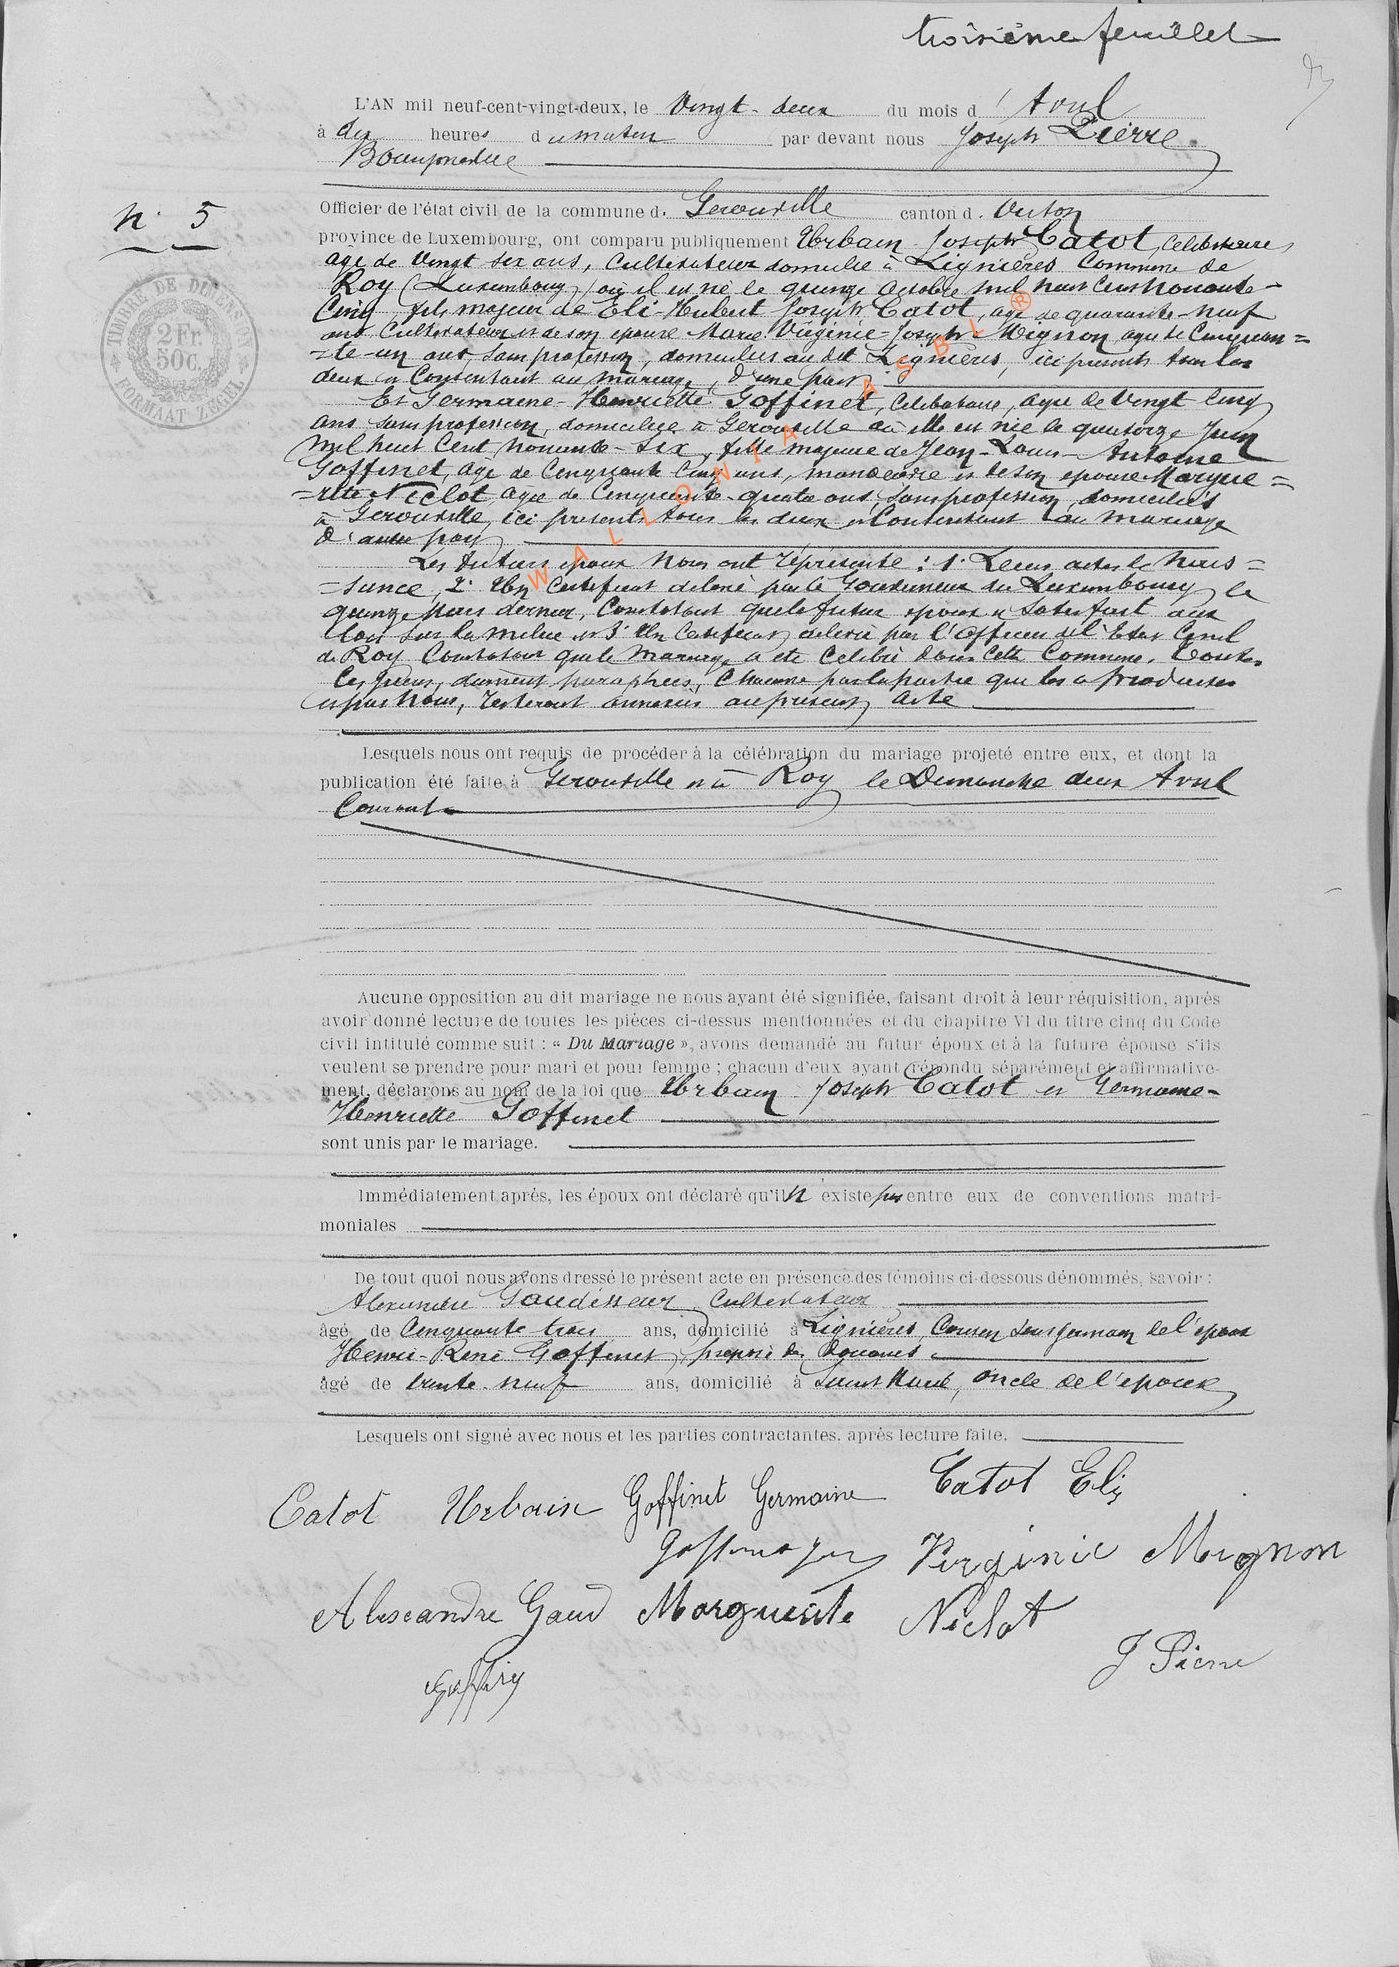 troisième feuillet
L'AN mil neuf-cent-vingt-deux, le Vingt-deux du mois d'Avril
à dix heures du matin par devant nous Joseph Pierre
Bourgmestre
N° 5
Officier de l'état civil de la commune d. Gerouville canton d. Virton
province de Luxembourg, ont comparu publiquement Urbain Joseph Catot, Celibataire,
agé de Vingt six ans, Cultivateur domicilié à Lignières Commune de
Roy (Luxembourg) où il est né le quinze Octobre mil huit Cent nonante-
Cinq, fils majeur de Eli-Hubert Joseph Catot, agé de quarante-neuf
ans Cultivateur et de son epouse Marie Virginie-Joseph Mignon agée de Cinquan=
=te-un ans sans profession, domiciliés au dit Lignières, ici présents tous les
deux et Consentant au mariage, d'une part
Et Germaine-Henriette Goffinet, Celibataire, agée de Vingt Cinq
ans sans profession, domiciliée à Gerouville où elle est née le quatorze Juin
mil huit Cent nonante-six, fille majeure de Jean-Louis-Antoine
Goffinet, agé de Cinquante Cinq ans, et de son epouse Margue=
=rite Niclot agée de Cinquante-quatre ans, sans profession, domiciliés
à Gerouville, ici présents tous les deux et Consentant au mariage
d'autre part
Les futurs epoux Nous ont représenté : 1° Leurs actes de Nais=
=sance, 2° Un Certificat délivré par le Gouverneur du Luxembourg, le
quinze Mars dernier, Constatant que le futur epoux a satisfait aux
lois sur la milice et 3° Un Certificat délivré par l'Officier de l'Etat Civil
de Roy Constatant que le Mariage a été Célébré dans cette Commune. Toutes
Ces pièces, dument paraphées, Chacune par la partie qui les a produites
et par Nous, resteront annexées au présent acte
Lesquels nous ont requis de procéder à la célébration du mariage projeté entre eux, et dont la
publication été faite à Gerouville et à Roy le Dimanche deux Avril
Courant
Aucune opposition au dit mariage ne nous ayant été signifiée, faisant droit à leur réquisition, après
avoir donné lecture de toutes les pièces ci-dessus mentionnées et du chapitre VI du titre cinq du Code
civil intitulé comme suit : « Du Mariage », avons demandé au futur époux et à la future épouse s'ils
veulent se prendre pour mari et pour femme ; chacun d'eux ayant répondu séparément et affirmative-
ment, déclarons au nom de la loi que Urbain Joseph Catot et Germaine-
Henriette Goffinet
sont unis par le mariage.
Immédiatement après, les époux ont déclaré qu'il n'existe pas entre eux de conventions matri-
moniales
De tout quoi nous avons dressé le présent acte en présence des témoins ci-dessous dénommés, savoir :
Alexandre Cultivateur
âgé de Cinquante trois ans, domicilié à Lignières, Cousin sous germain de l'epoux
Henri-René Goffinet, préposé des Douanes
âgé de trente-neuf ans, domicilié à Saint Mard, oncle de l'epouse
Lesquels ont signé avec nous et les parties contractantes, après lecture faite.
Catot Urbain Goffinet Germaine Catot Eli
Virginie Mignon
Alexandre Gaud Marguerite Niclot
J Pierre
TIMBRE DE DIMENSION
2 Fr.
50 C.
FORMAAT ZEGEL
WALLONIA ASBL ®